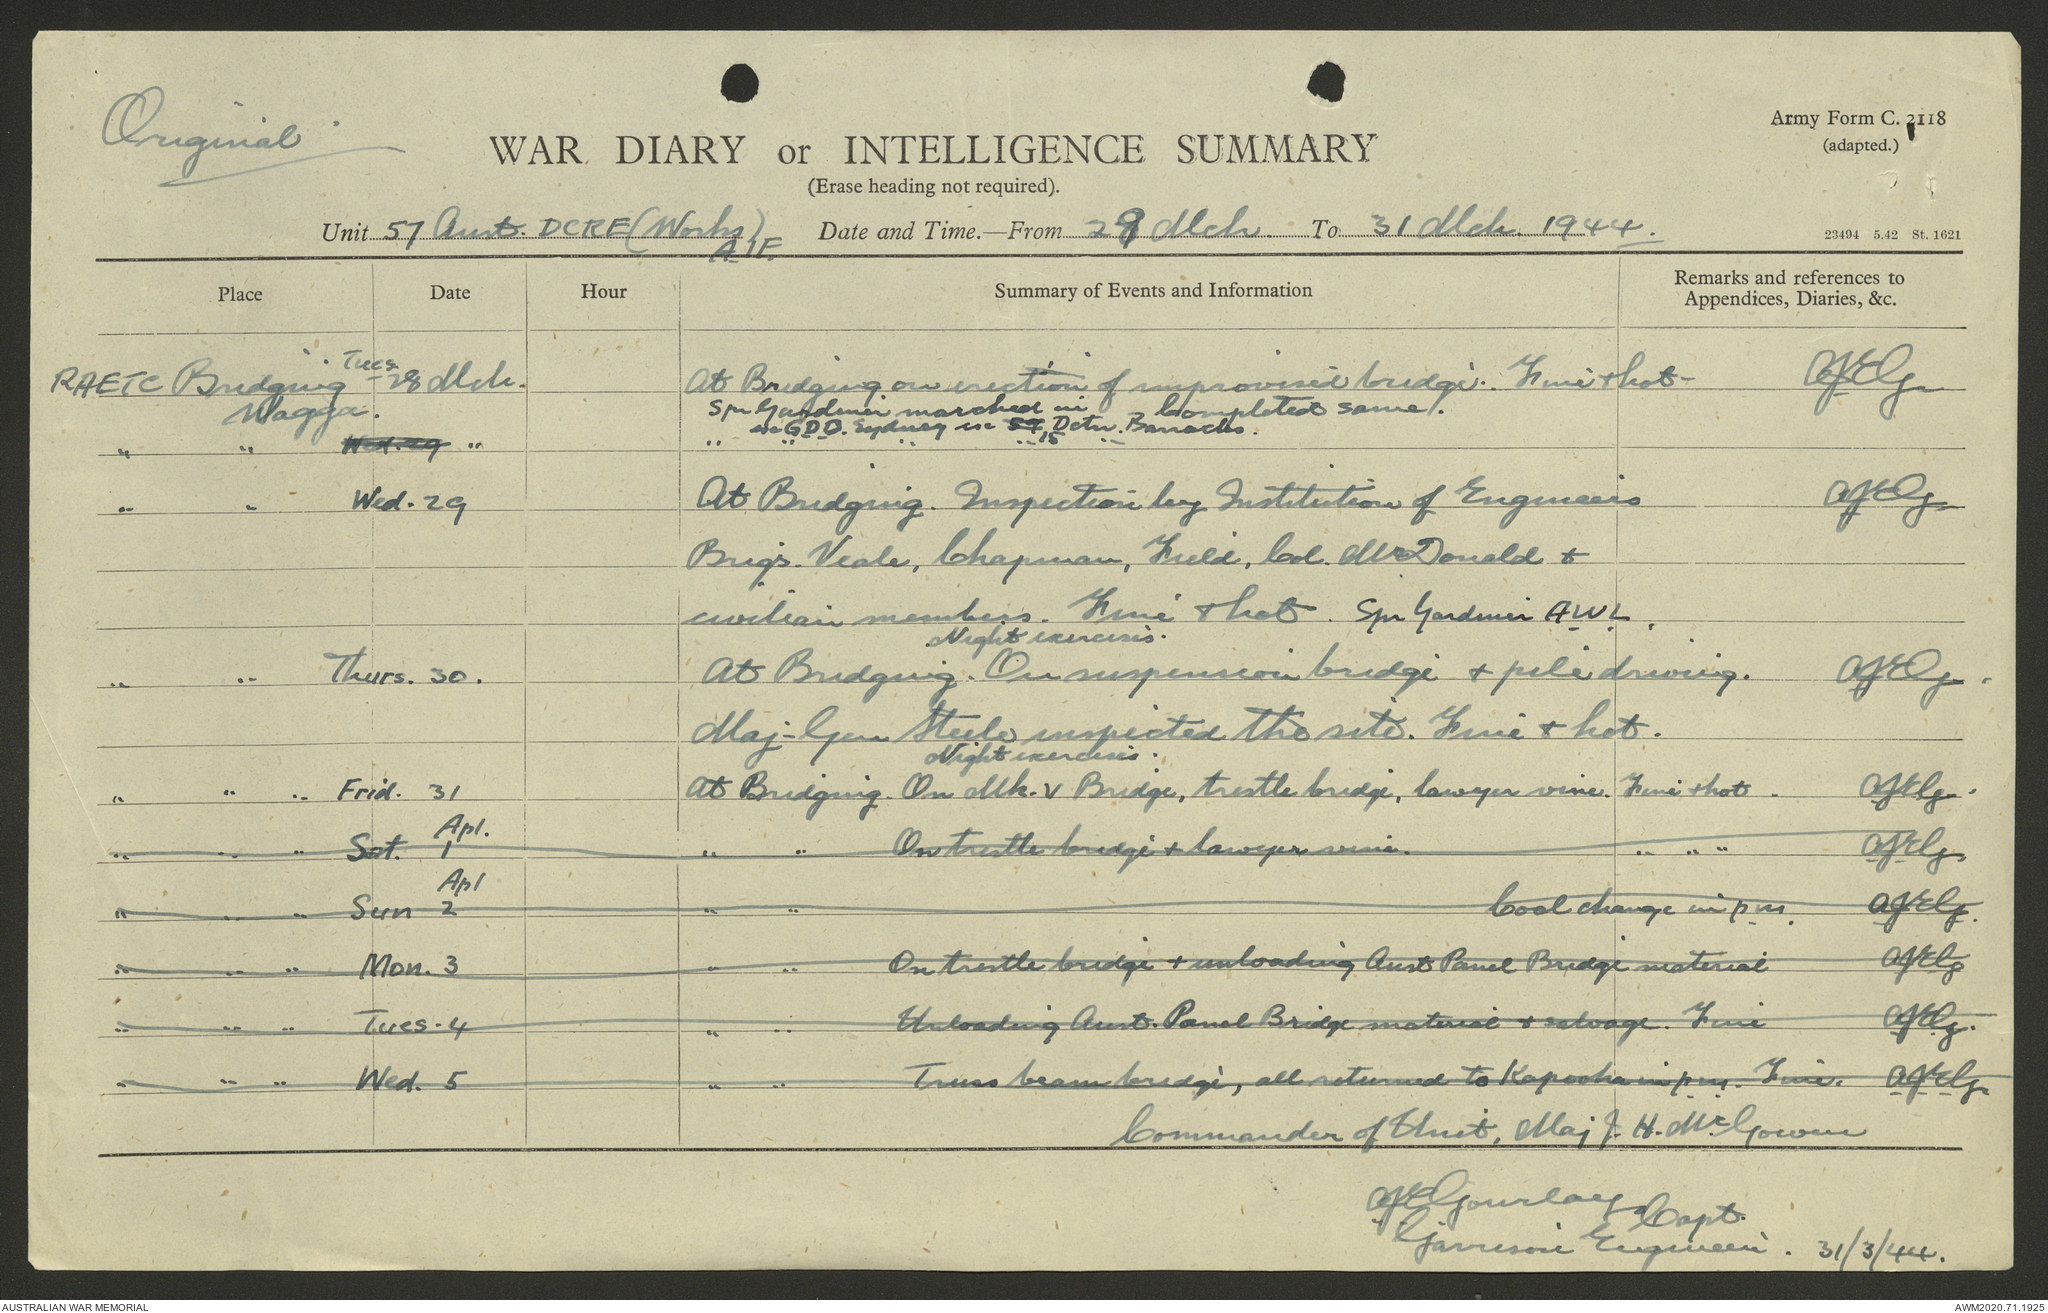 Original
Army Form C. 2118
(adapted.)
WAR DIARY or INTELLIGENCE SUMMARY
(Erase heading not required).
Unit 57 Aust. DCRE (Works) Date and Time.—From 28 Mch. To 31 Mch. 1944.
A.I.F.
23494 5.42 St. 1621
Place Date Hour Summary of Events and Information Remarks and references to
Appendices, Diaries, &c.
RAETC Bridging Tues 28 Mch. At Bridging on erection of improvised bridge. Fine & hot AJEG
Wagga. Spr Gardiner marched in Completed same.
GDO. Sydney 15 Detn. Barracks.
" " Wed. 29 " " " " " "
" " Wed. 29 At Bridging. Inspection by Institution of Engineers AJEG
Brigs. Veale, Chapman, Field, Col. McDonald &
civilian members. Fine & hot. Spr Gardiner AWL.
Night exercises.
" " Thurs. 30. At Bridging. On suspension bridge & pile driving. AJEG.
Maj-Gen Steele inspected the site. Fine & hot.
Night exercises.
" " " Frid. 31 At Bridging. On Mk. V Bridge, trestle bridge, lawyer vine. Fine & hot. AJEG.
" " " Sat. Apl. 1 " " On trestle bridge & lawyer vine. " " " AJEG.
" " " Sun Apl 2 " " Cool change in p.m. AJEG.
" " " Mon. 3 " " On trestle bridge & unloading Aust Panel Bridge material AJEG
" " " Tues. 4 " " Unloading Aust. Panel Bridge material & salvage. Fine AJEG.
" " " Wed. 5 " " Truss beam bridge, all returned to Kapooka in p.m. Fine. AJEG.
Commander of Unit, Maj J. H. McGowen
AJEGourlay Capt.
Garrison Engineer. 31/3/44.
AUSTRALIAN WAR MEMORIAL
AWM2020.71.1925